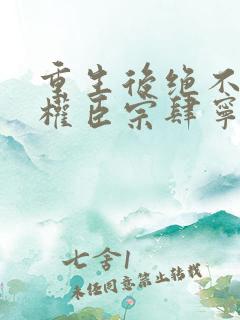 重生後绝不
權臣宗肆寧
七舍1
未经同意禁止转载